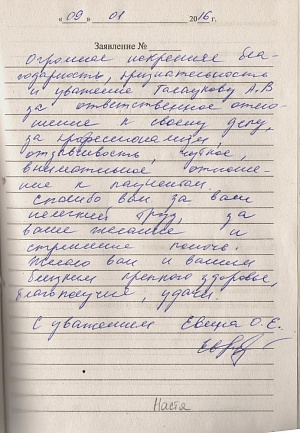 « 09 » 01 2016 г.
Заявление №
Огромное искреннее бла-
годарность, признательность
и уважение А.В
за ответственное отно-
шение к своему делу,
за профессионализм,
отзывчивость, чуткое,
внимательное отноше-
ние к пациентам.
Спасибо вам за ваш
нелегкий труд, за
ваше желание и
стремление помочь.
Желаю вам и вашим
близким крепкого здоровья,
благополучия, удачи.
С уважением О.Е.
Настя